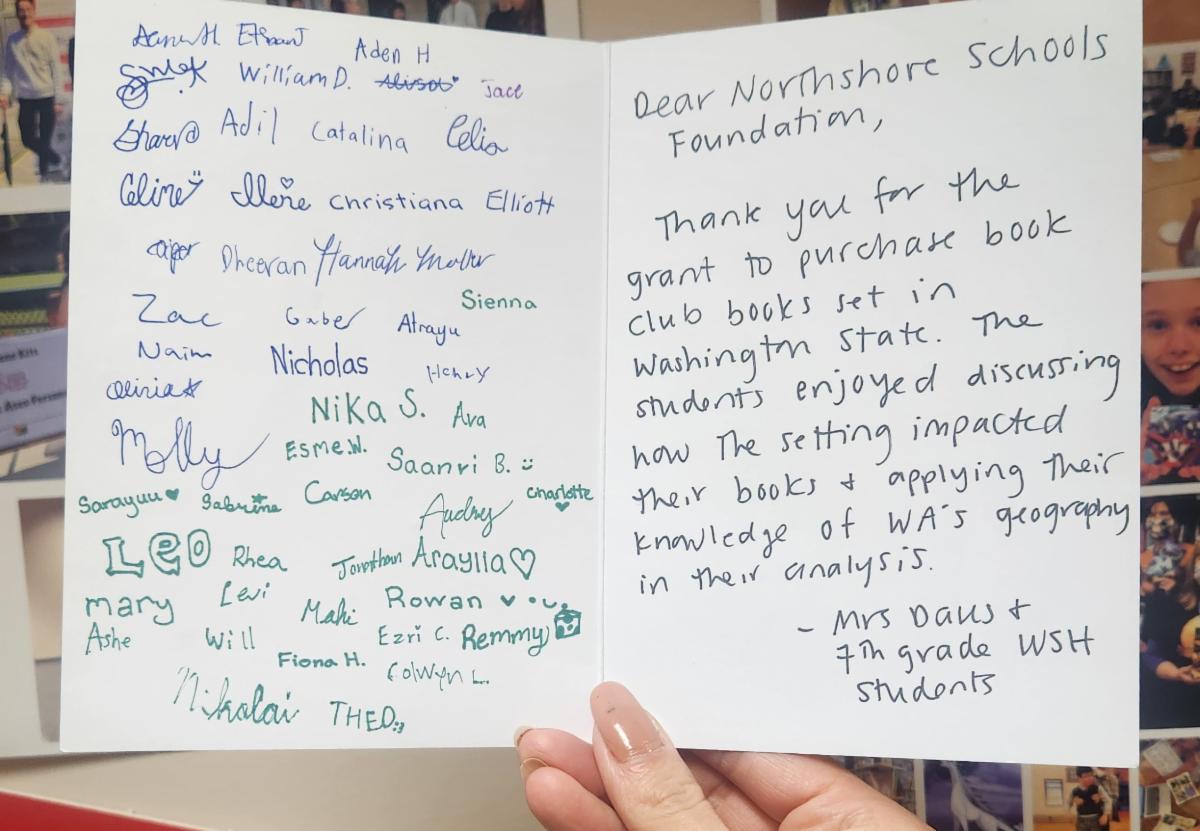 Aden H
William D. Jace
Adil Catalina Celia
Celine Christiana Elliott
Dheeran Hannah
Sienna
Zac Gaber Atrayu
Naim Nicholas Henry
Olivia
Nika S. Ava
Molly Esme.W. Saanvi B.
Sarayuu Sabrina Carson Audrey Charlotte
Leo Rhea Jonathan Araylia
mary Levi Mahi Rowan
Ashe Will Ezri C. Remmy
Fiona H. Colwyn L.
Nikolai THEO
Dear Northshore Schools
Foundation,
Thank you for the
grant to purchase book
club books set in
Washington State. The
students enjoyed discussing
how the setting impacted
their books + applying their
knowledge of WA's geography
in their analysis.
- Mrs Daus +
7th grade WSH
students